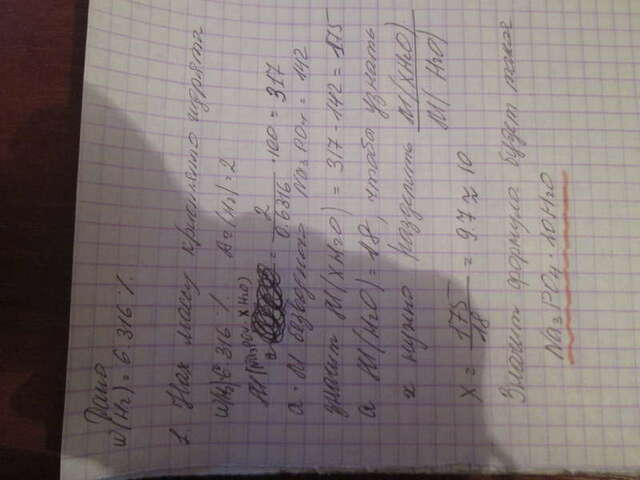 Дано
w(H₂) = 6 316 %
1. Нах массу кристаллогидрата
w(H₂) 6 316 % A₂(H₂) = 2
M(Na₂PO₄ · XH₂O) = 2 / 0.6316 · 100 = 317
а M безводного Na₂PO₄ = 142
значит M(XH₂O) = 317 - 142 = 175
а M(H₂O) = 18, чтобы узнать
x нужно разделить M(XH₂O) / M(H₂O)
X = 175 / 18 = 9 7 ≈ 10
Значит формула будет такая
Na₂PO₄ · 10H₂O